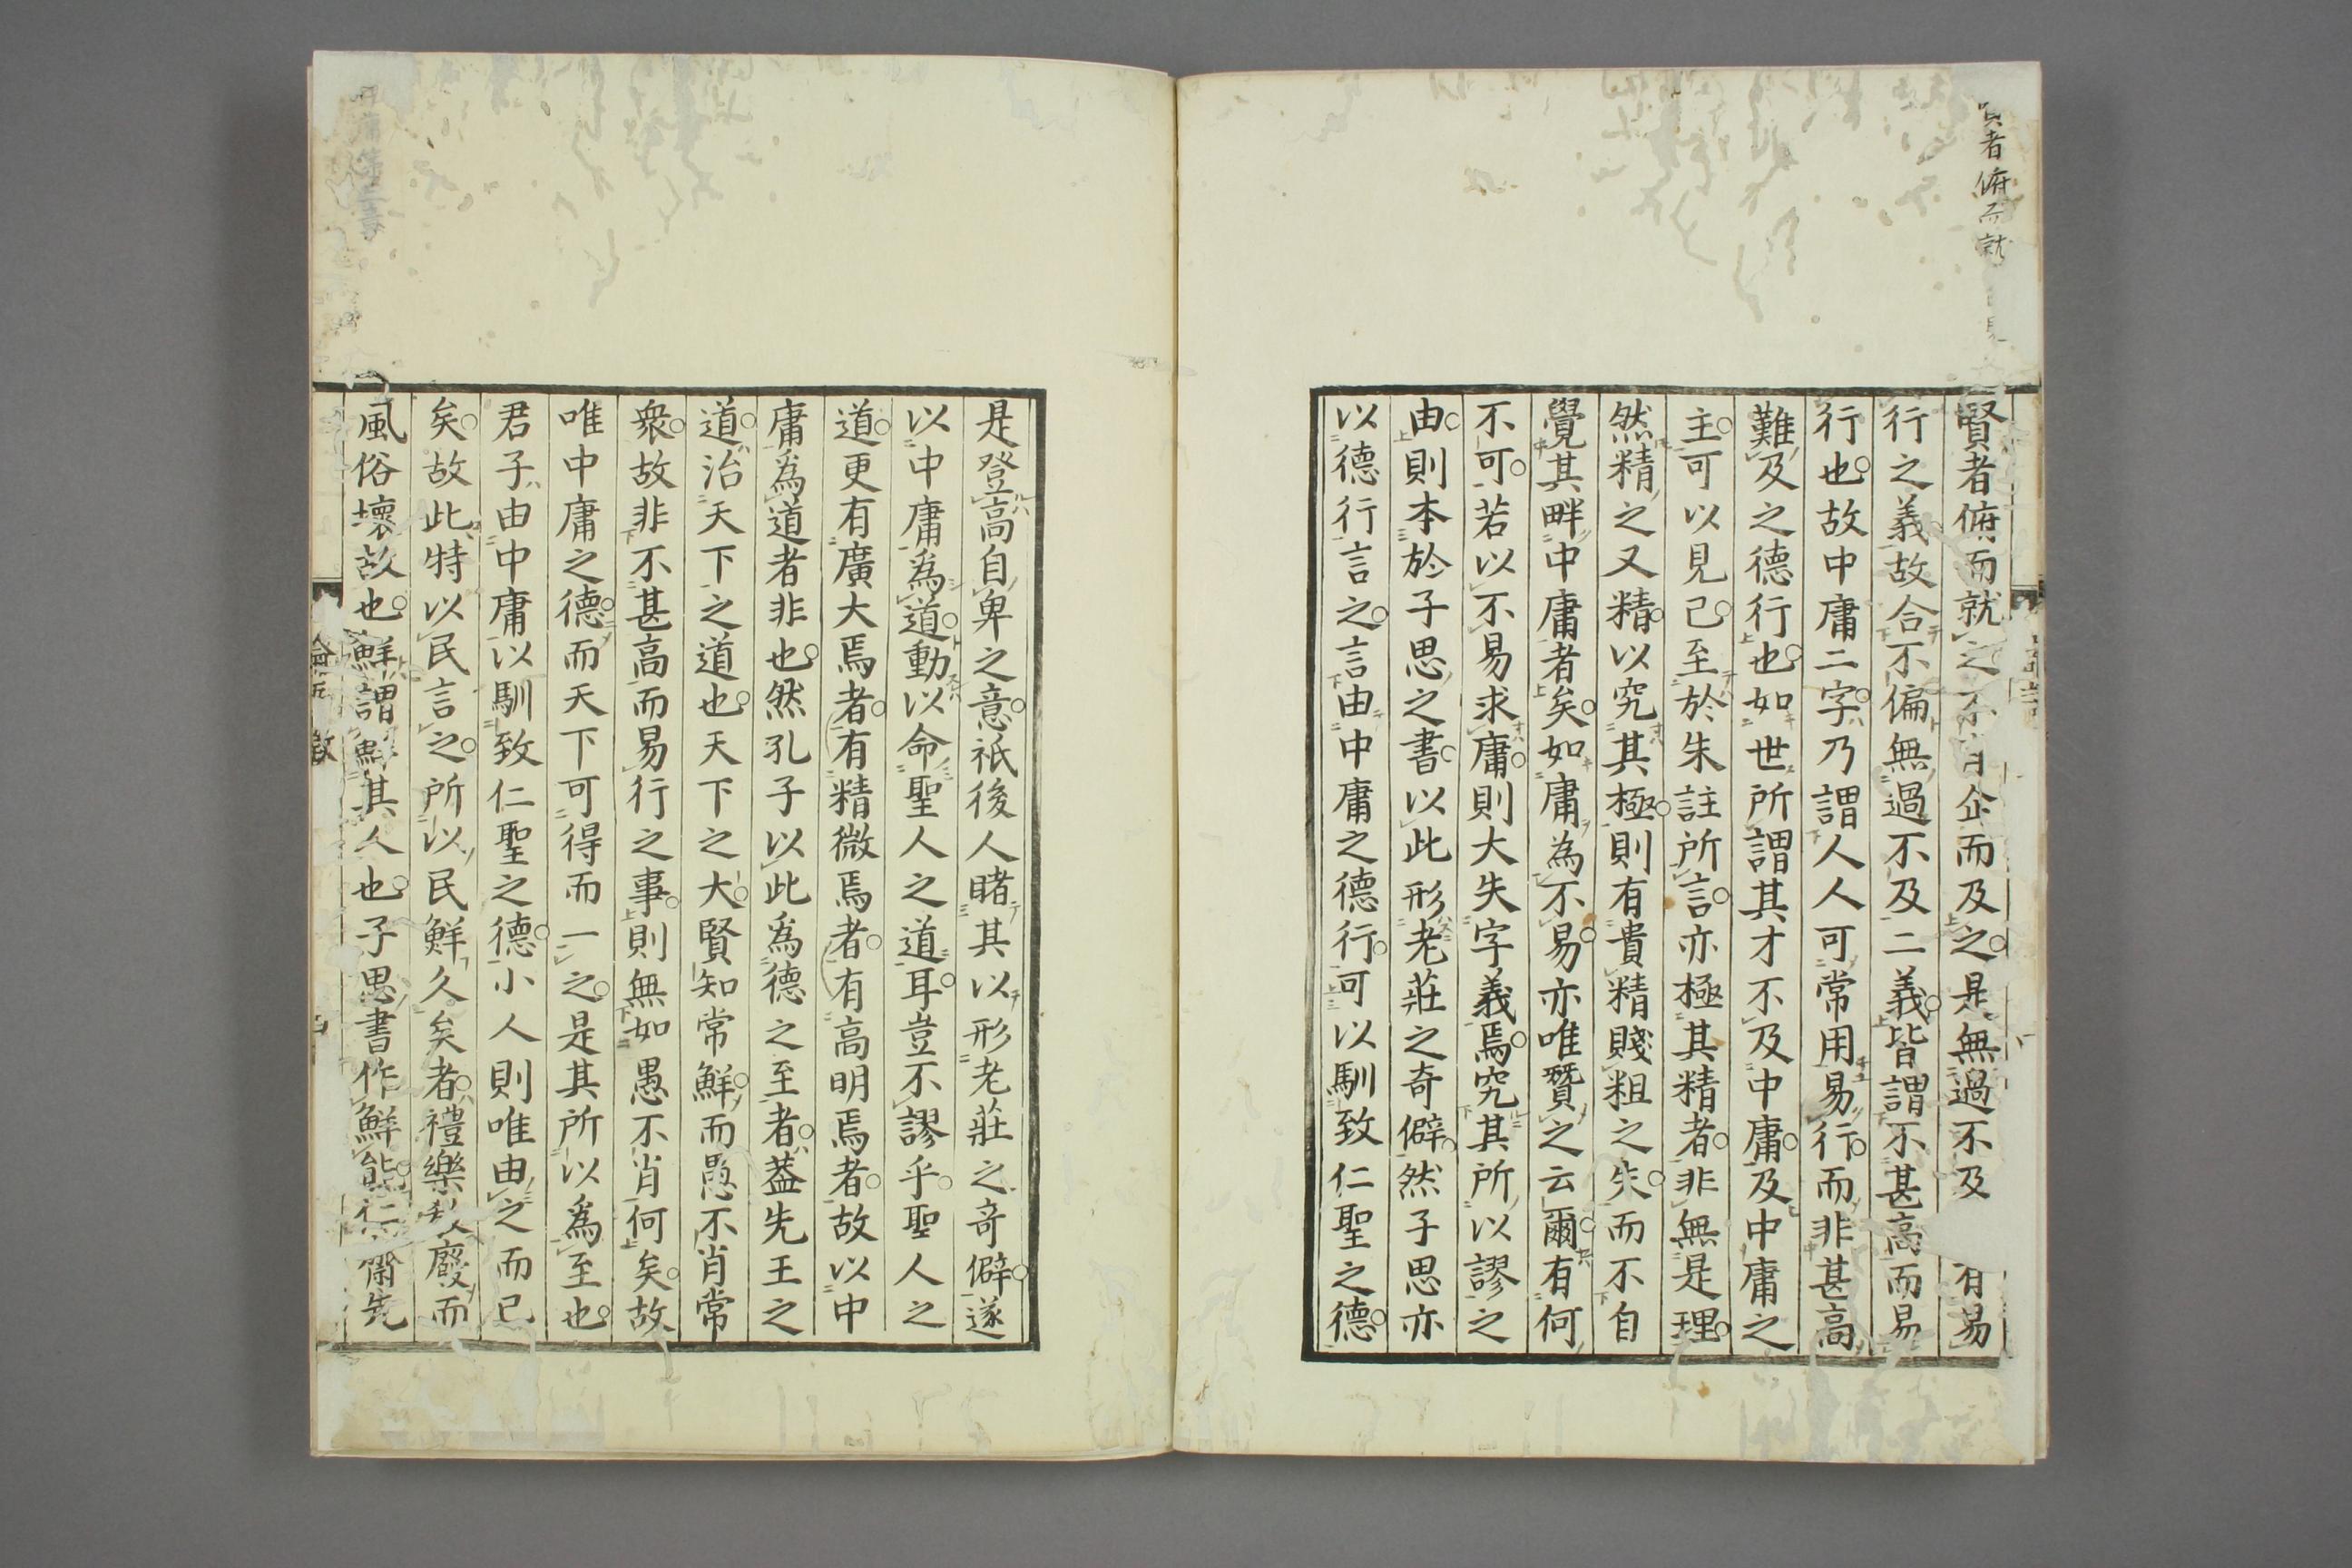 賢者俯而就
賢者俯而就之不肖企而及之是無過不及有易
行之義故合不偏無過不及二義皆謂不甚高而易
行也故中庸二字乃謂人人可常用易行而非甚高
難及之德行也如世所謂其才不及中庸及中庸之
主可以見已至於朱註所言亦極其精者非無是理
然精之又精以究其極則有貴精賤粗之失而不自
覺其畔中庸者矣如庸為不易亦唯贊之云爾有何
不可若以不易求庸則大失字義焉究其所以謬之
由則本於子思之書以此形老莊之奇僻然子思亦
以德行言之言由中庸之德行可以馴致仁聖之德
是登高自卑之意祇後人睹其以形老莊之奇僻遂
以中庸爲道動以命聖人之道耳豈不謬乎聖人之
道更有廣大焉者有精微焉者有高明焉者故以中
庸爲道者非也然孔子以此爲德之至者蓋先王之
道治天下之道也天下之大賢知常鮮而愚不肖常
衆故非不甚高而易行之事則無如愚不肖何矣故
唯中庸之德而天下可得而一之是其所以爲至也
君子由中庸以馴致仁聖之德小人則唯由之而已
矣故此特以民言之所以民鮮久矣者禮樂教廢而
風俗壞故也鮮謂鮮其人也子思書作鮮能仁齋先